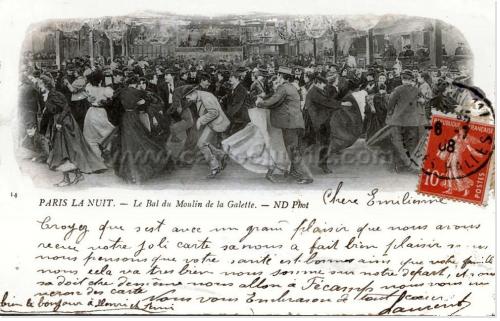 14
PARIS LA NUIT. - Le Bal du Moulin de la Galette. - ND Phot
REPUBLIQUE FRANÇAISE
10
8
08
Chere Emilienne
Croyez que s'est avec un grand plaisir que nous avons
recu notre joli carte sa nous a fait bien plaisir
nous pensons que votre santé est bonne ainsi que votre famille
nous cela va tres bien nous somme sur notre départ, et
sa doit etre nous allon à Fécamp nous vous
des carte Nous vous Embrason à tout
bien le bonjour à Henri et
Laurent